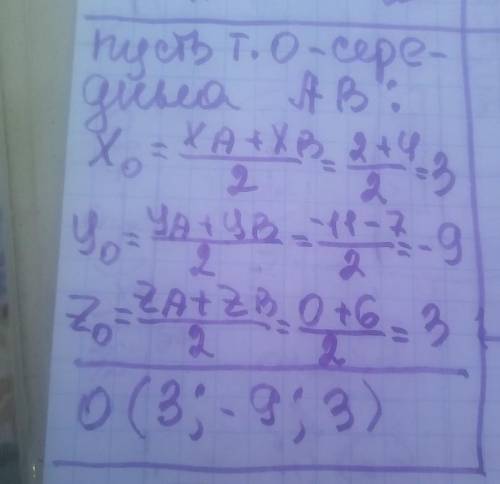 пусть т. О - сере-
дина АВ:
X₀ = (XA + XB)/2 = (2+4)/2 = 3
У₀ = (УA + УB)/2 = (-11-7)/2 = -9
Z₀ = (ZA + ZB)/2 = (0+6)/2 = 3
О (3; -9; 3)